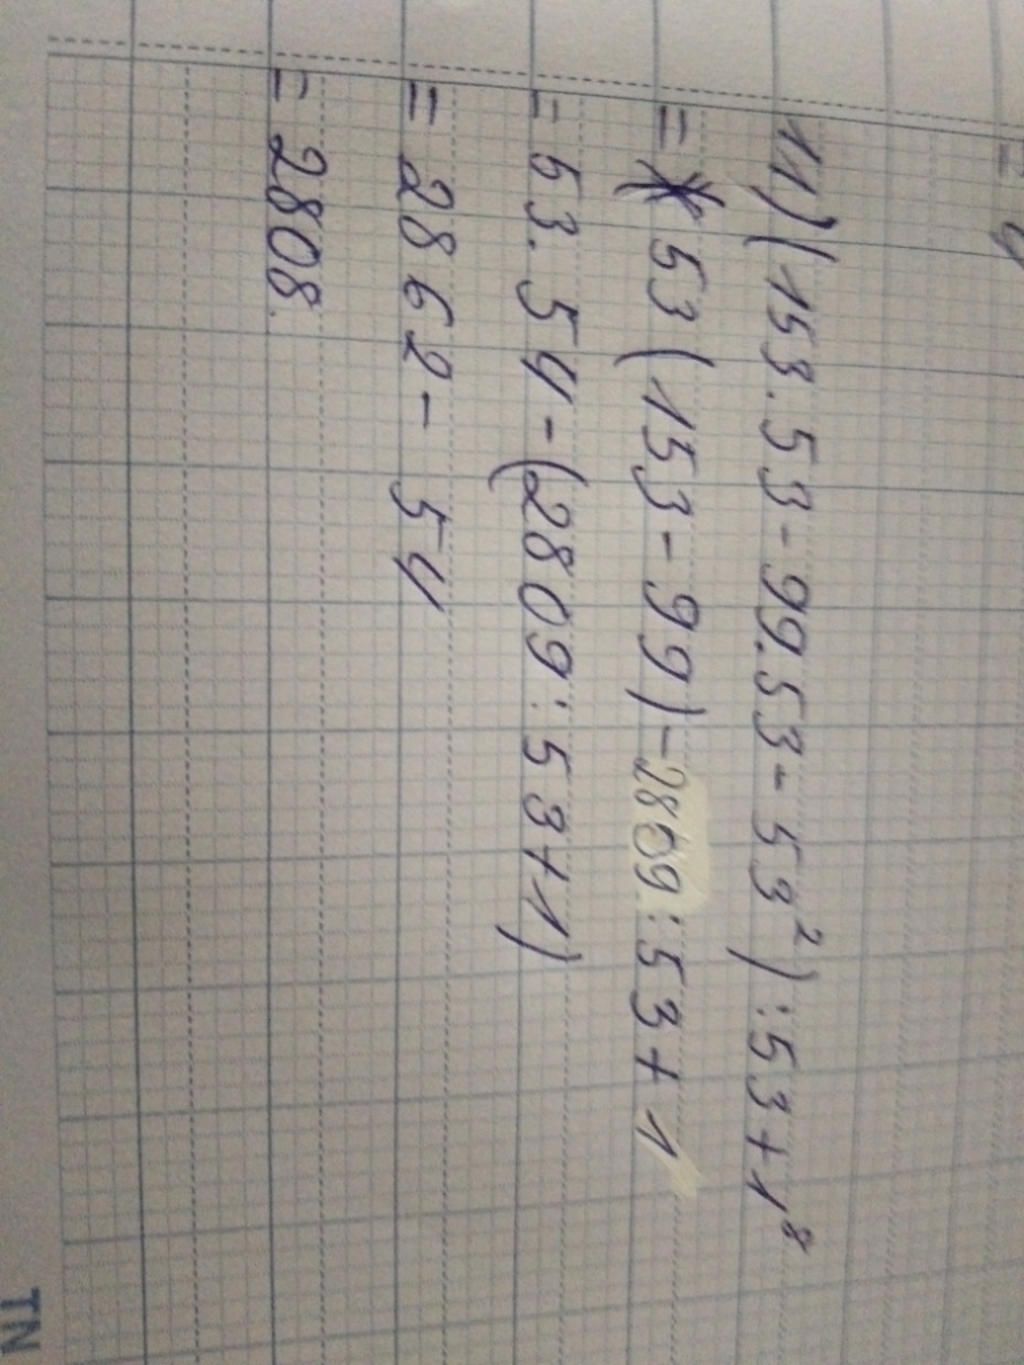 11) (153.53-99.53-53²):53+1⁸
= 53(153-99)-2809:53+1
= 53.54-(2809:53+1)
= 2862-54
= 2808.
TN